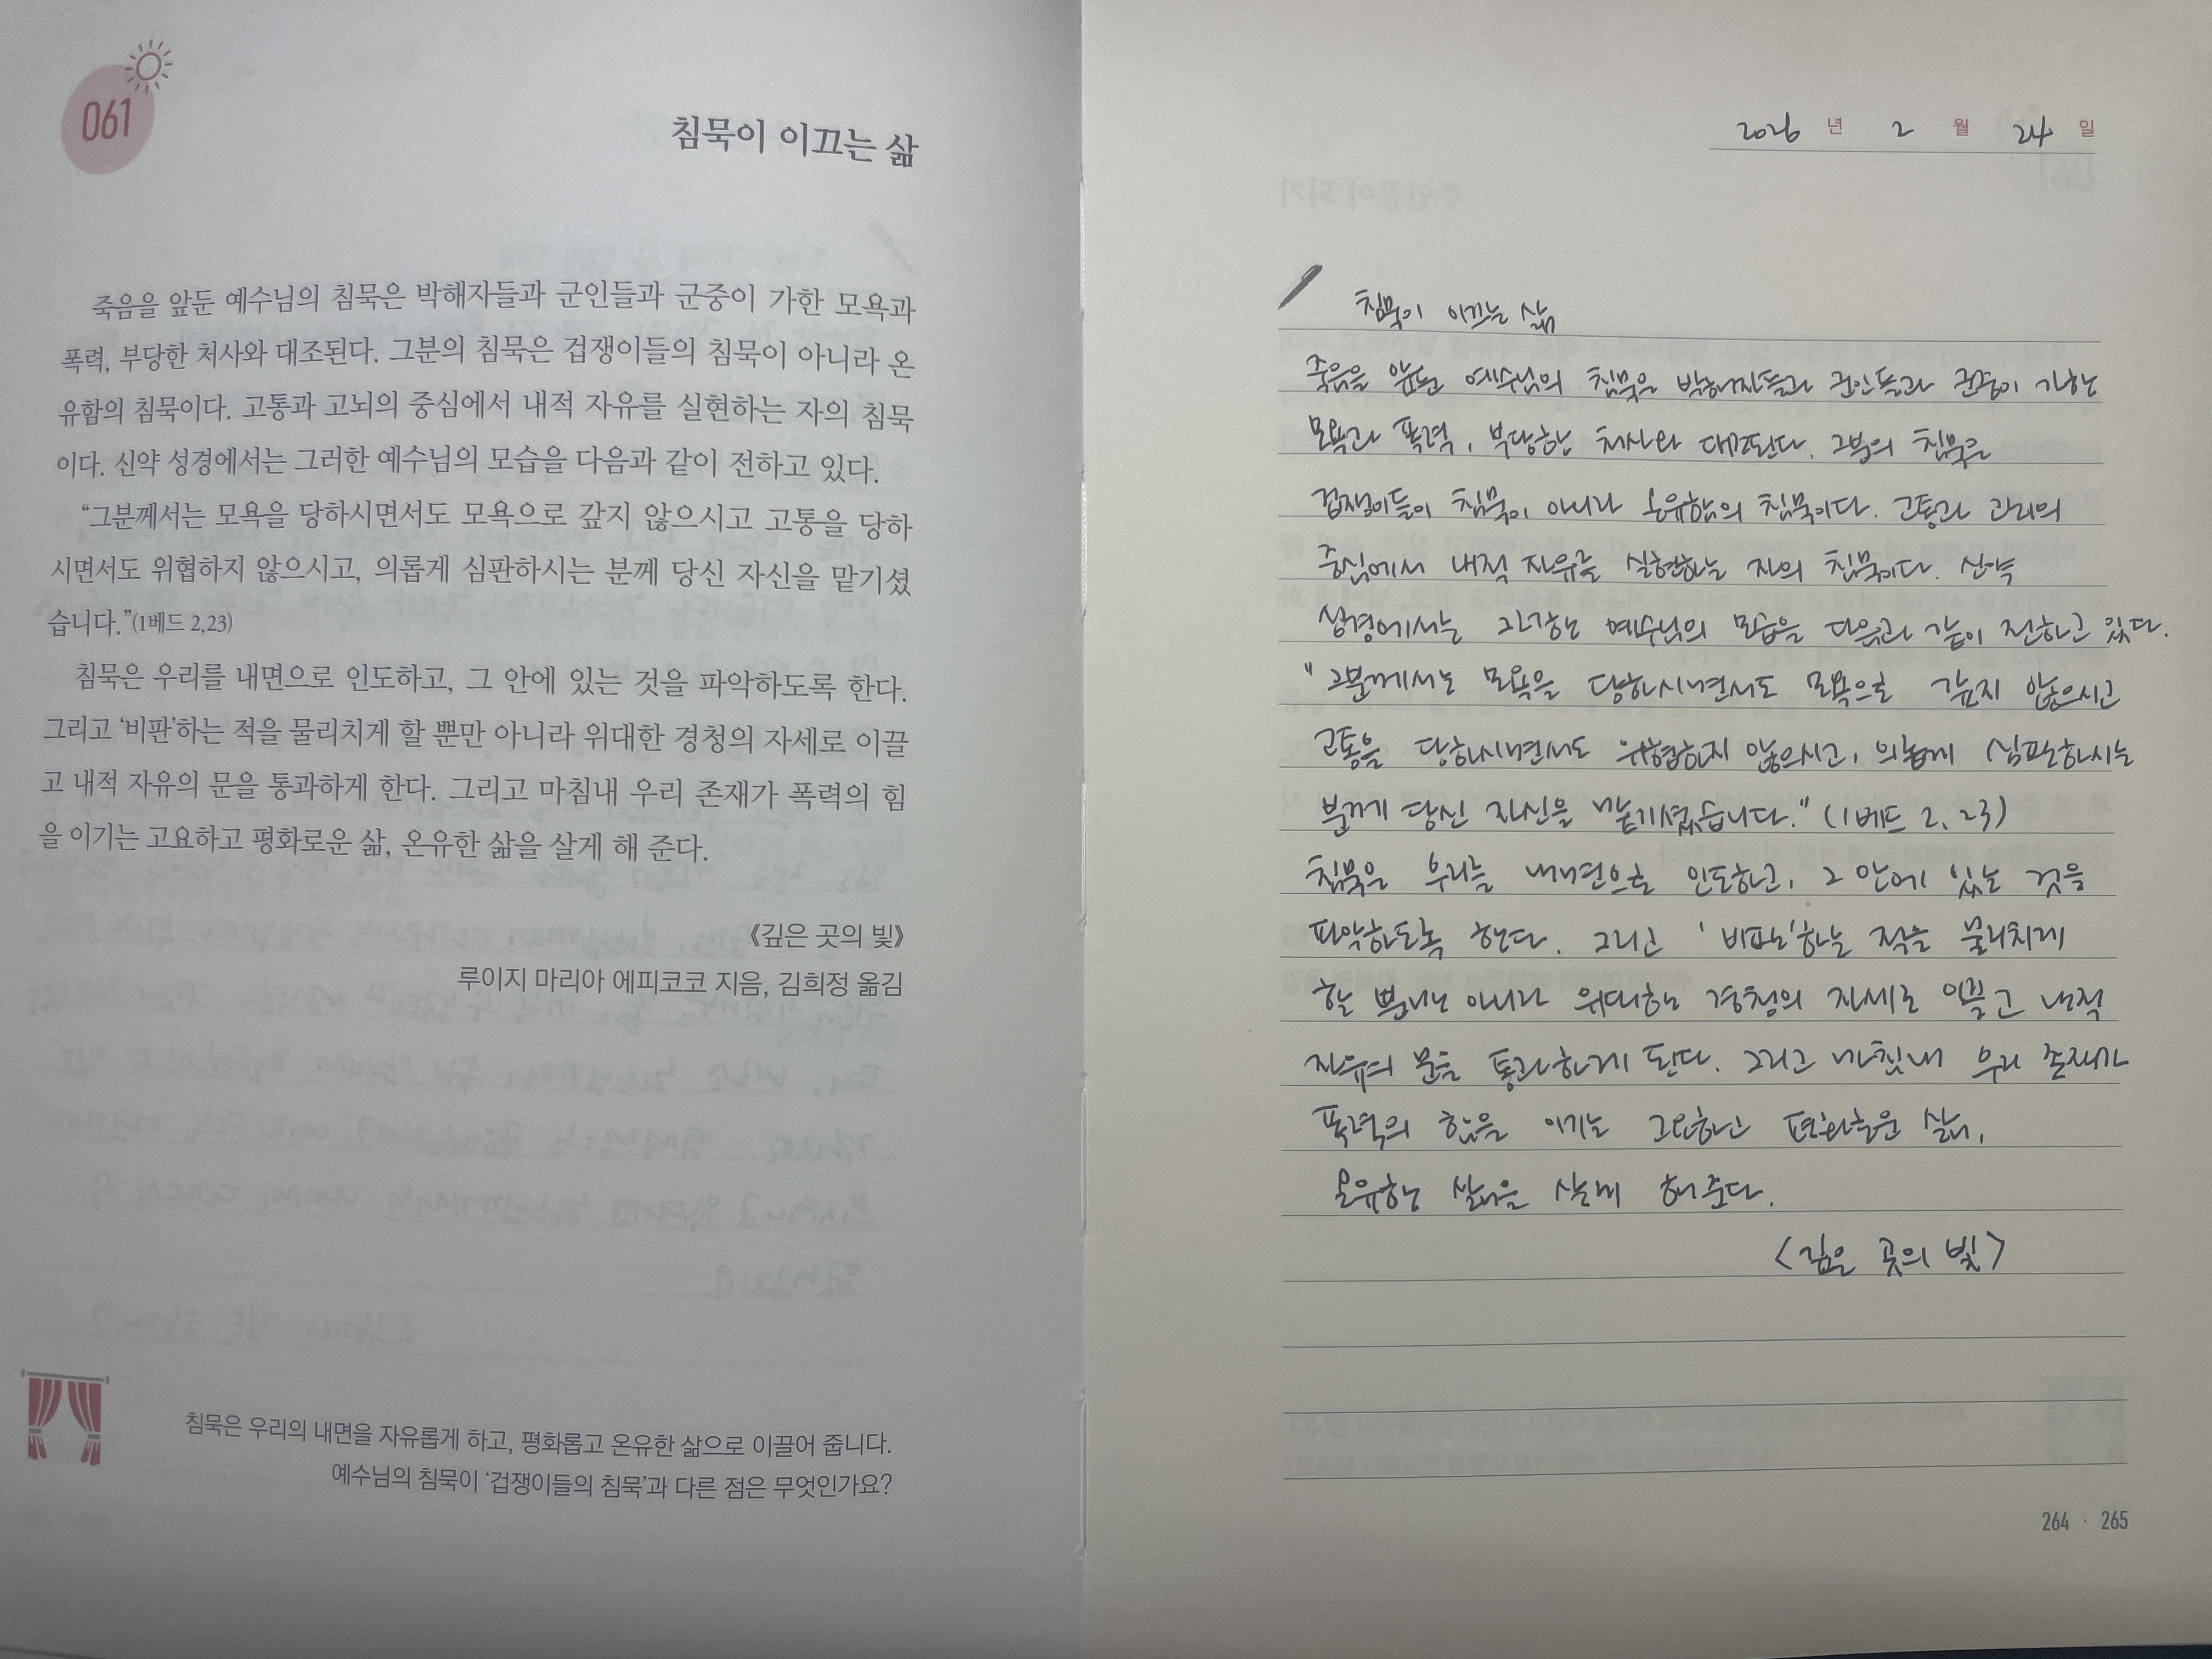 061
침묵이 이끄는 삶
죽음을 앞둔 예수님의 침묵은 박해자들과 군인들과 군중이 가한 모욕과
폭력, 부당한 처사와 대조된다. 그분의 침묵은 겁쟁이들의 침묵이 아니라 온
유함의 침묵이다. 고통과 고뇌의 중심에서 내적 자유를 실현하는 자의 침묵
이다. 신약 성경에서는 그러한 예수님의 모습을 다음과 같이 전하고 있다.
“그분께서는 모욕을 당하시면서도 모욕으로 갚지 않으시고 고통을 당하
시면서도 위협하지 않으시고, 의롭게 심판하시는 분께 당신 자신을 맡기셨
습니다.”(1베드 2,23)
침묵은 우리를 내면으로 인도하고, 그 안에 있는 것을 파악하도록 한다.
그리고 ‘비판’하는 적을 물리치게 할 뿐만 아니라 위대한 경청의 자세로 이끌
고 내적 자유의 문을 통과하게 한다. 그리고 마침내 우리 존재가 폭력의 힘
을 이기는 고요하고 평화로운 삶, 온유한 삶을 살게 해 준다.
《깊은 곳의 빛》
루이지 마리아 에피코코 지음, 김희정 옮김
침묵은 우리의 내면을 자유롭게 하고, 평화롭고 온유한 삶으로 이끌어 줍니다.
예수님의 침묵이 ‘겁쟁이들의 침묵’과 다른 점은 무엇인가요?
2026 년 2 월 24 일
침묵이 이끄는 삶
죽음을 앞둔 예수님의 침묵은 박해자들과 군인들과 군중이 가한
모욕과 폭력, 부당한 처사와 대조된다. 그분의 침묵은
겁쟁이들이 침묵이 아니라 온유함의 침묵이다. 고통과 의
중심에서 내적 자유를 실현하는 자의 침묵이다. 신약
성경에서는 예수님의 모습을 다음과 같이 전하고 있다.
"그분께서는 모욕을 당하시면서도 모욕으로 갚지 않으시고
고통을 당하시면서도 위협하지 않으시고, 의롭게 심판하시는
분께 당신 자신을 맡기셨습니다." (1베드 2, 23)
침묵은 우리를 내면으로 인도하고, 그 안에 있는 것을
파악하도록 한다. 그리고 '비판'하는 적을 물리치게
할 뿐만 아니라 위대한 경청의 자세로 이끌고 내적
자유의 문을 통과하게 된다. 그리고 마침내 우리 존재가
폭력의 힘을 이기는 고요하고 평화로운 삶,
온유한 삶을 살게 해 준다.
<깊은 곳의 빛>
264 · 265